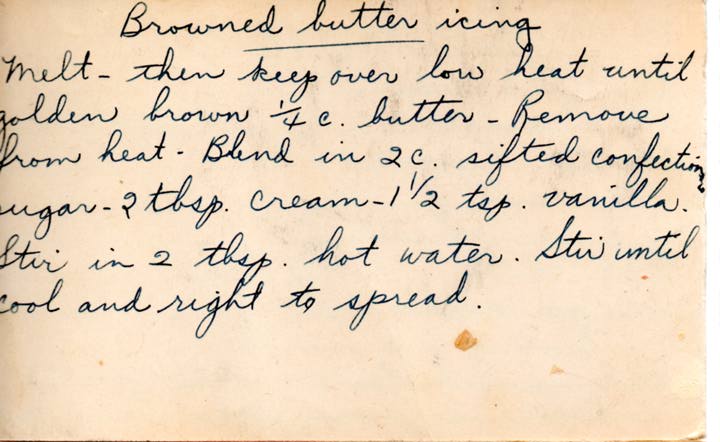 Browned butter icing
Melt - then keep over low heat until
golden brown 1/4 c. butter - Remove
from heat - Blend in 2 c. sifted confection
sugar - 2 tbsp. cream - 1 1/2 tsp. vanilla.
Stir in 2 tbsp. hot water. Stir until
cool and right to spread.